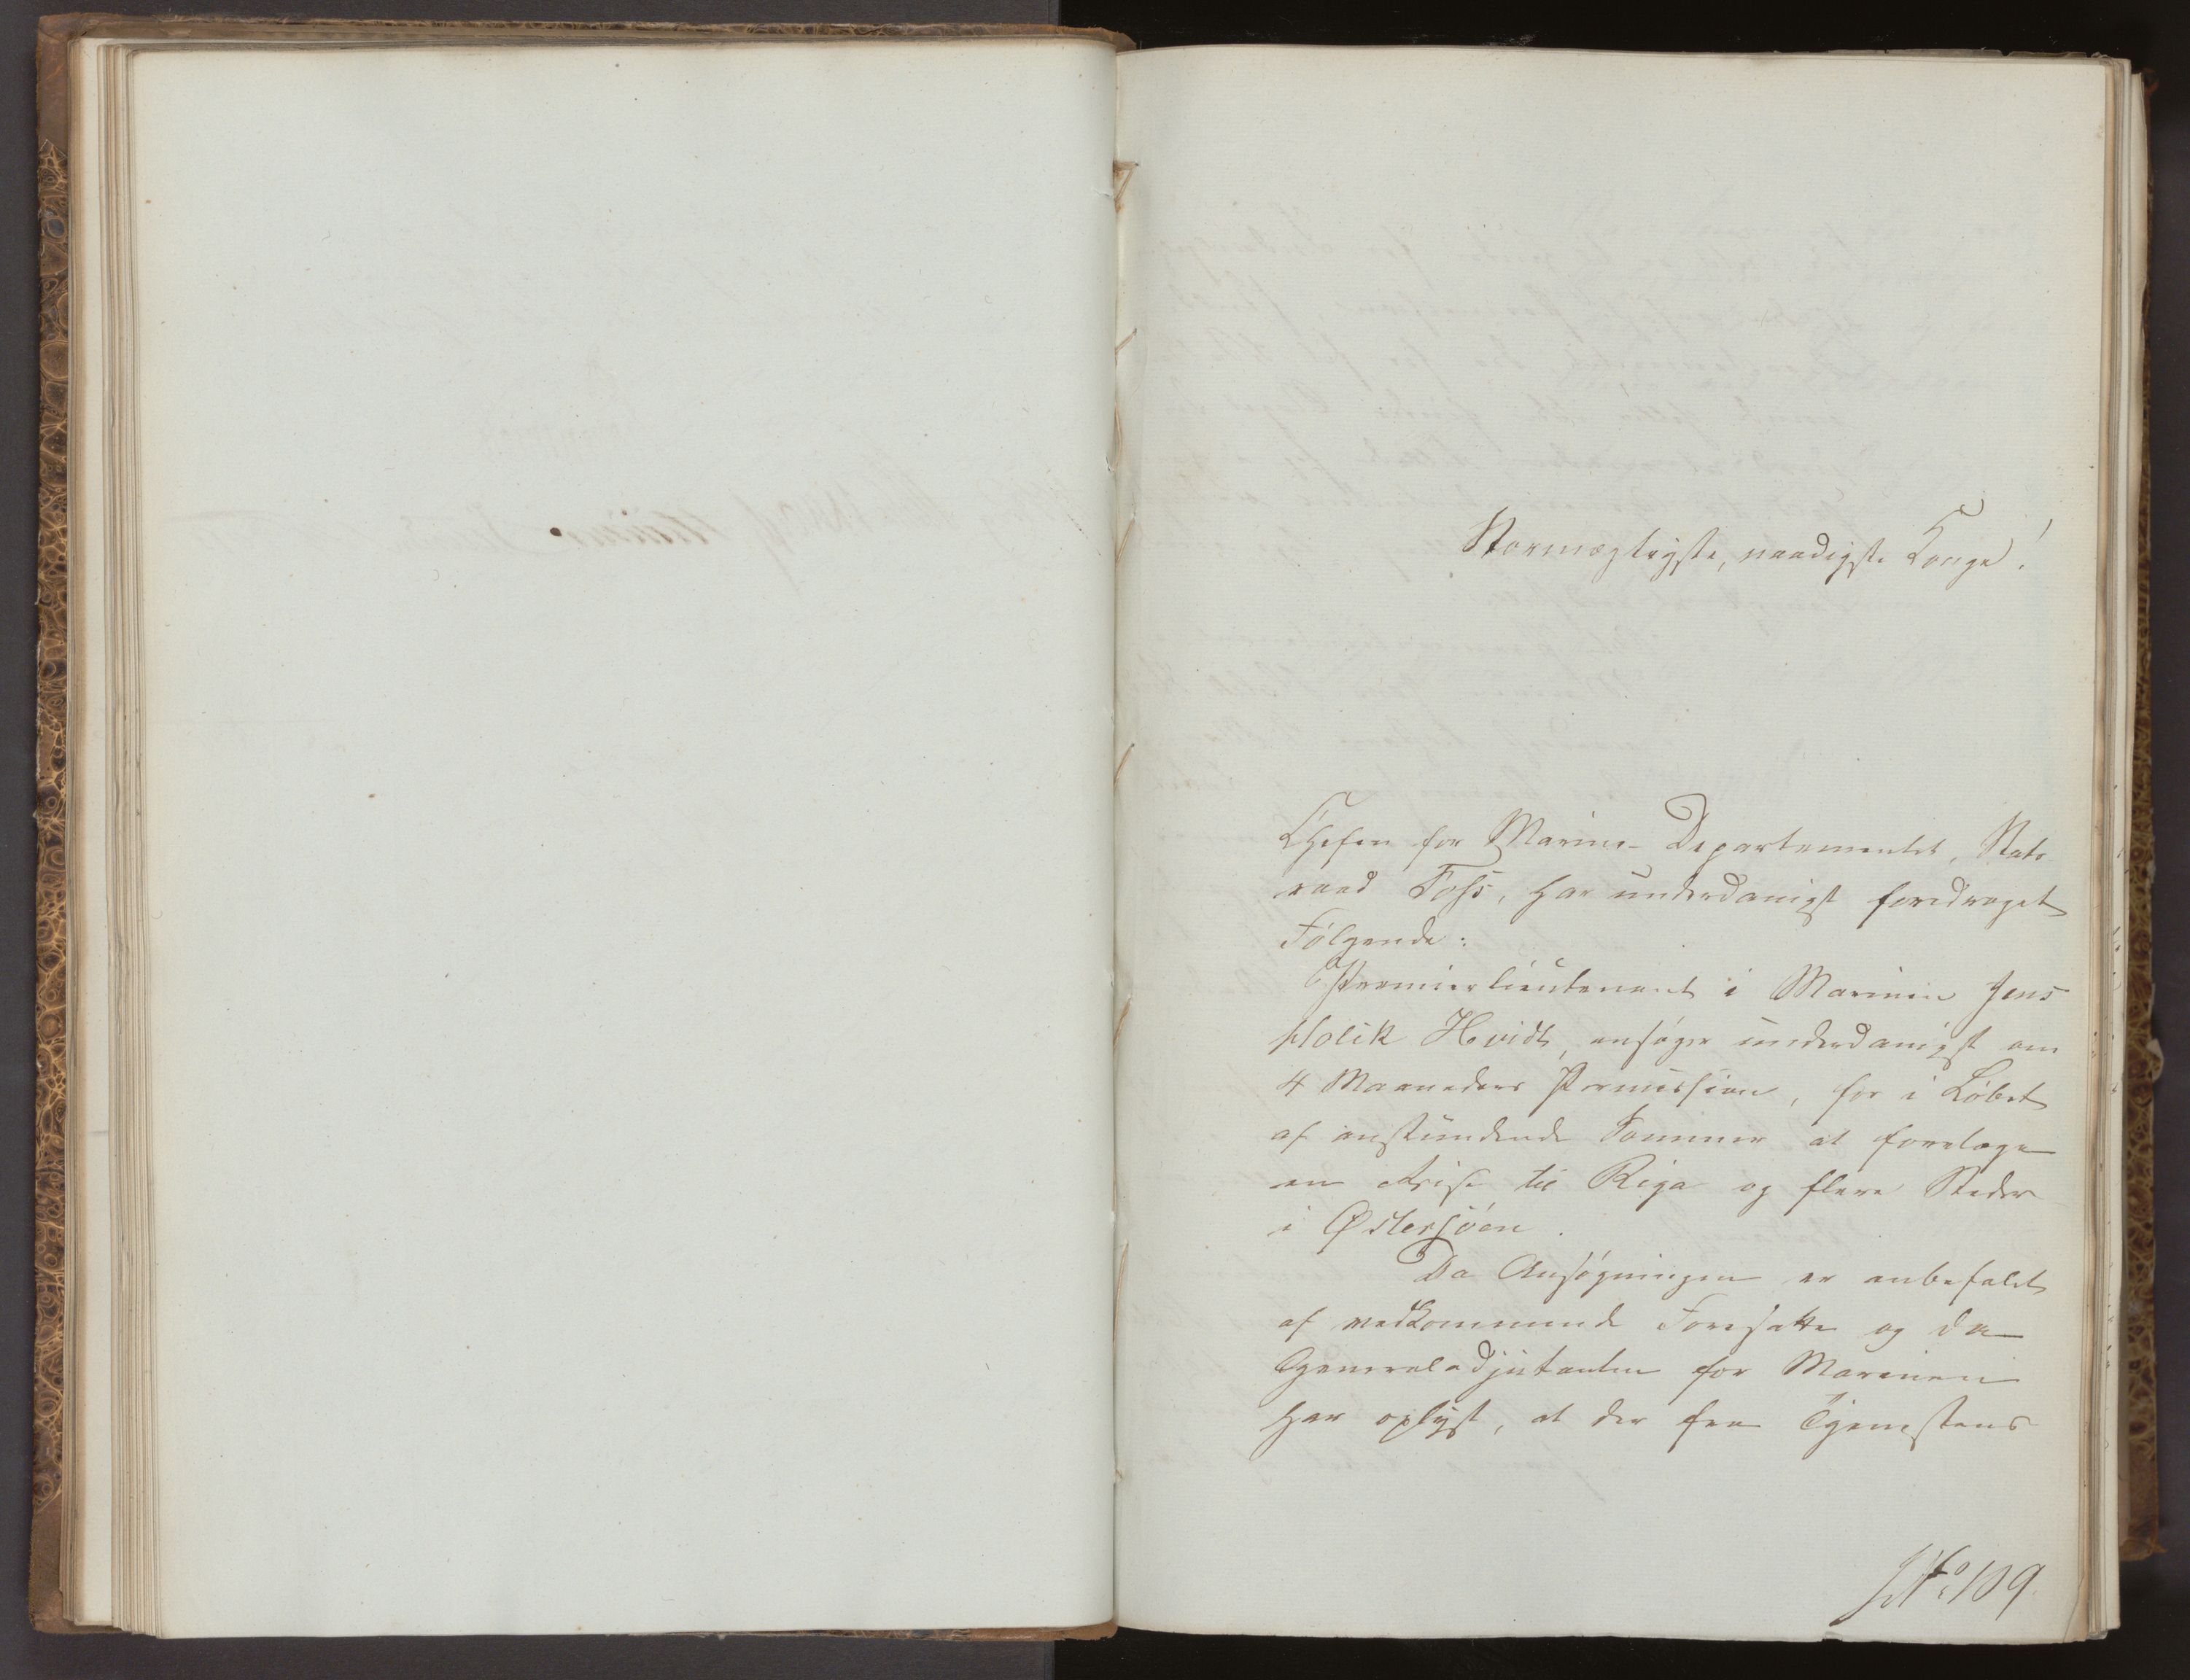 Stormægtigste, naadigste Konge!
Chefen for Marine-Departementet, Stats
raad Foss, har underdanigst foredraget
Følgende:
Premierlieutenant i Marinen Jens
Holck Hvidt, ansøger underdanigst om
4 Maaneders Permission, for i Løbet
af anstundende Sommer at foretage
en Reise til Riga og flere Steder
i Østersjøen.
Da Ansøgningen er anbefalet
af vedkommende Foresatte og da
Generaladjutanten for Marinen
har oplyst, at der fra Tjenestens
No. 109